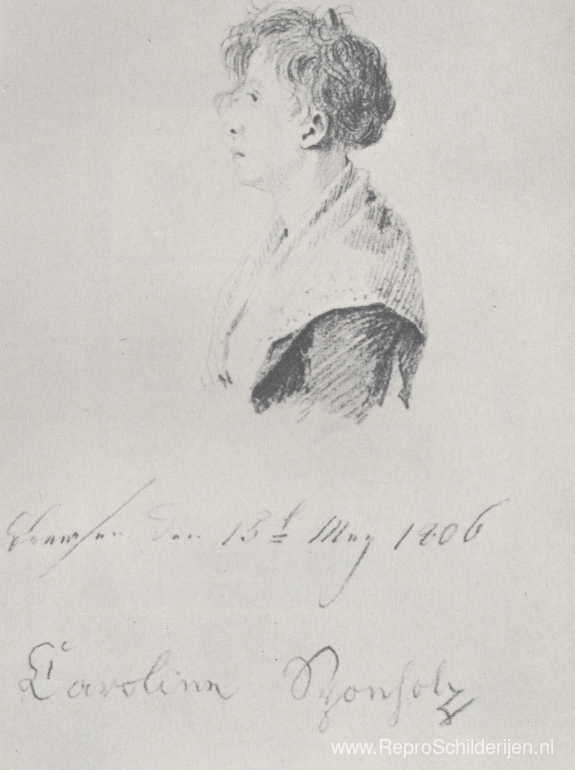 Breesen den 13t May 1806
Caroline Sponholz
www.ReproSchilderijen.nl